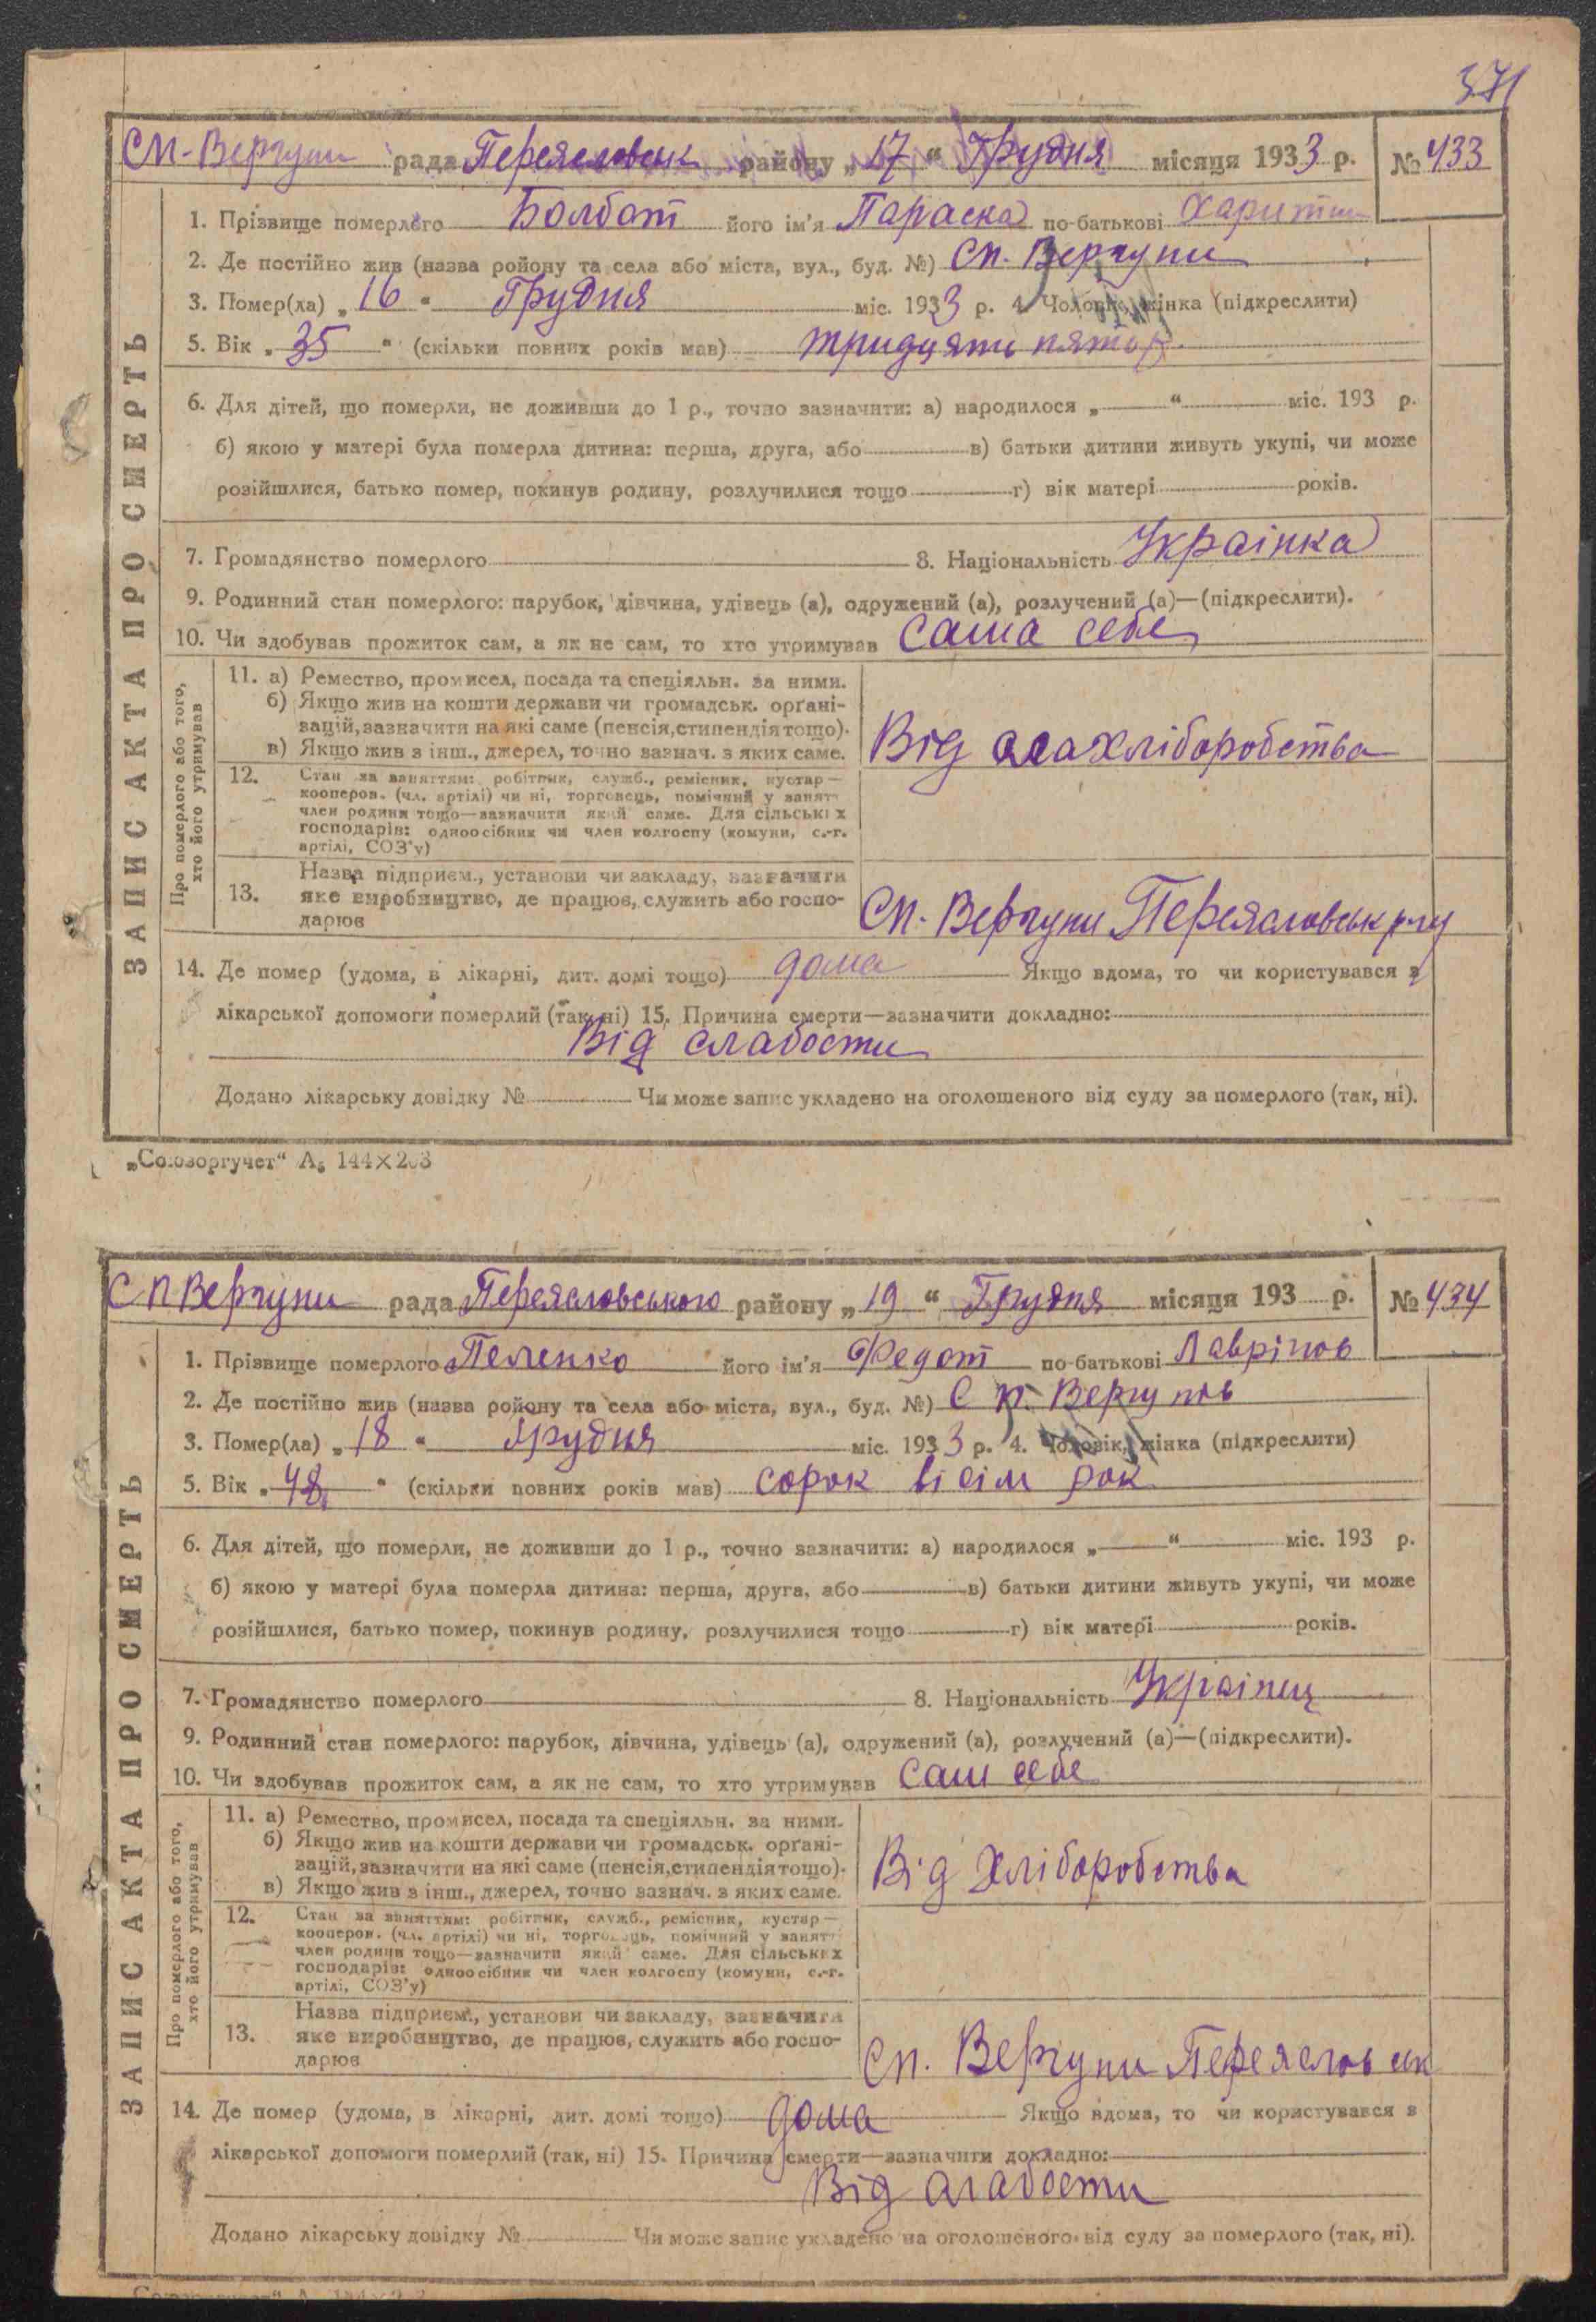 371
СП-Вергуни рада Переясловськ району „17“ Грудня місяця 1933 р. № 433
1. Прізвище померлого Болбот його ім'я Параска по-батькові
2. Де постійно жив (назва ройону та села або міста, вул., буд. №) СП. Вергуни
3. Помер(ла) „16“ Грудня міс. 1933 р. 4. Чоловік, жінка (підкреслити)
5. Вік „35“ (скільки повних років мав) тридцять пять
6. Для дітей, що померли, не доживши до 1 р., точно зазначити: а) народилося „ “ міс. 193 р.
б) якою у матері була померла дитина: перша, друга, або в) батьки дитини живуть укупі, чи може
розійшлися, батько помер, покинув родину, розлучилися тощо г) вік матері років.
7. Громадянство померлого 8. Національність Украінка
9. Родинний стан померлого: парубок, дівчина, удівець (а), одружений (а), розлучений (а)—(підкреслити).
10. Чи здобував прожиток сам, а як не сам, то хто утримував сама себе
ЗАПИС АКТА ПРО СМЕРТЬ
Про померлого або того,
хто його утримував
11. а) Ремество, промисел, посада та спеціяльн. за ними.
б) Якщо жив на кошти держави чи громадськ. орґані-
зацій, зазначити на які саме (пенсія, стипендія тощо).
в) Якщо жив з інш., джерел, точно зазнач. з яких саме.
Від хліборобства
12. Стан за заняттям: робітник, служб., ремісник, кустар—
кооперов. (чл. артілі) чи ні, торговець, помічний у занят
член родини тощо—зазначити який саме. Для сільських
господарів: одноосібник чи член колгоспу (комуни, с.-г.
артілі, СОЗ'у)
13. Назва підприєм., установи чи закладу, зазначити
яке виробництво, де працює, служить або госпо-
дарює
СП. Вергуни Переясловськ р-ну
14. Де помер (удома, в лікарні, дит. домі тощо) дома Якщо вдома, то чи користувався з
лікарської допомоги померлий (так, ні) 15. Причина смерти—зазначити докладно:
Від слабости
Додано лікарську довідку № Чи може запис укладено на оголошеного від суду за померлого (так, ні).
„Союзоргучет“ А5 144×203
СП Вергуни рада Переясловського району „19“ Грудня місяця 193 р. № 434
1. Прізвище померлого Пеленко його ім'я Федот по-батькові Лаврінов
2. Де постійно жив (назва ройону та села або міста, вул., буд. №) С П. Вергунів
3. Помер(ла) „18“ Грудня міс. 1933 р. 4. Чоловік, жінка (підкреслити)
5. Вік „48“ (скільки повних років мав) сорок вісім рок
6. Для дітей, що померли, не доживши до 1 р., точно зазначити: а) народилося „ “ міс. 193 р.
б) якою у матері була померла дитина: перша, друга, або в) батьки дитини живуть укупі, чи може
розійшлися, батько помер, покинув родину, розлучилися тощо г) вік матері років.
7. Громадянство померлого 8. Національність Украінец
9. Родинний стан померлого: парубок, дівчина, удівець (а), одружений (а), розлучений (а)—(підкреслити).
10. Чи здобував прожиток сам, а як не сам, то хто утримував сам себе
ЗАПИС АКТА ПРО СМЕРТЬ
Про померлого або того,
хто його утримував
11. а) Ремество, промисел, посада та спеціяльн. за ними.
б) Якщо жив на кошти держави чи громадськ. орґані-
зацій, зазначити на які саме (пенсія, стипендія тощо).
в) Якщо жив з інш., джерел, точно зазнач. з яких саме.
Від Хліборобства
12. Стан за заняттям: робітник, служб., ремісник, кустар—
кооперов. (чл. артілі) чи ні, торговець, помічний у занят
член родини тощо—зазначити який саме. Для сільських
господарів: одноосібник чи член колгоспу (комуни, с.-г.
артілі, СОЗ'у)
13. Назва підприєм., установи чи закладу, зазначити
яке виробництво, де працює, служить або госпо-
дарює
СП. Вергуни Переясловськ
14. Де помер (удома, в лікарні, дит. домі тощо) дома Якщо вдома, то чи користувався з
лікарської допомоги померлий (так, ні) 15. Причина смерти—зазначити докладно:
Від слабости
Додано лікарську довідку № Чи може запис укладено на оголошеного від суду за померлого (так, ні).